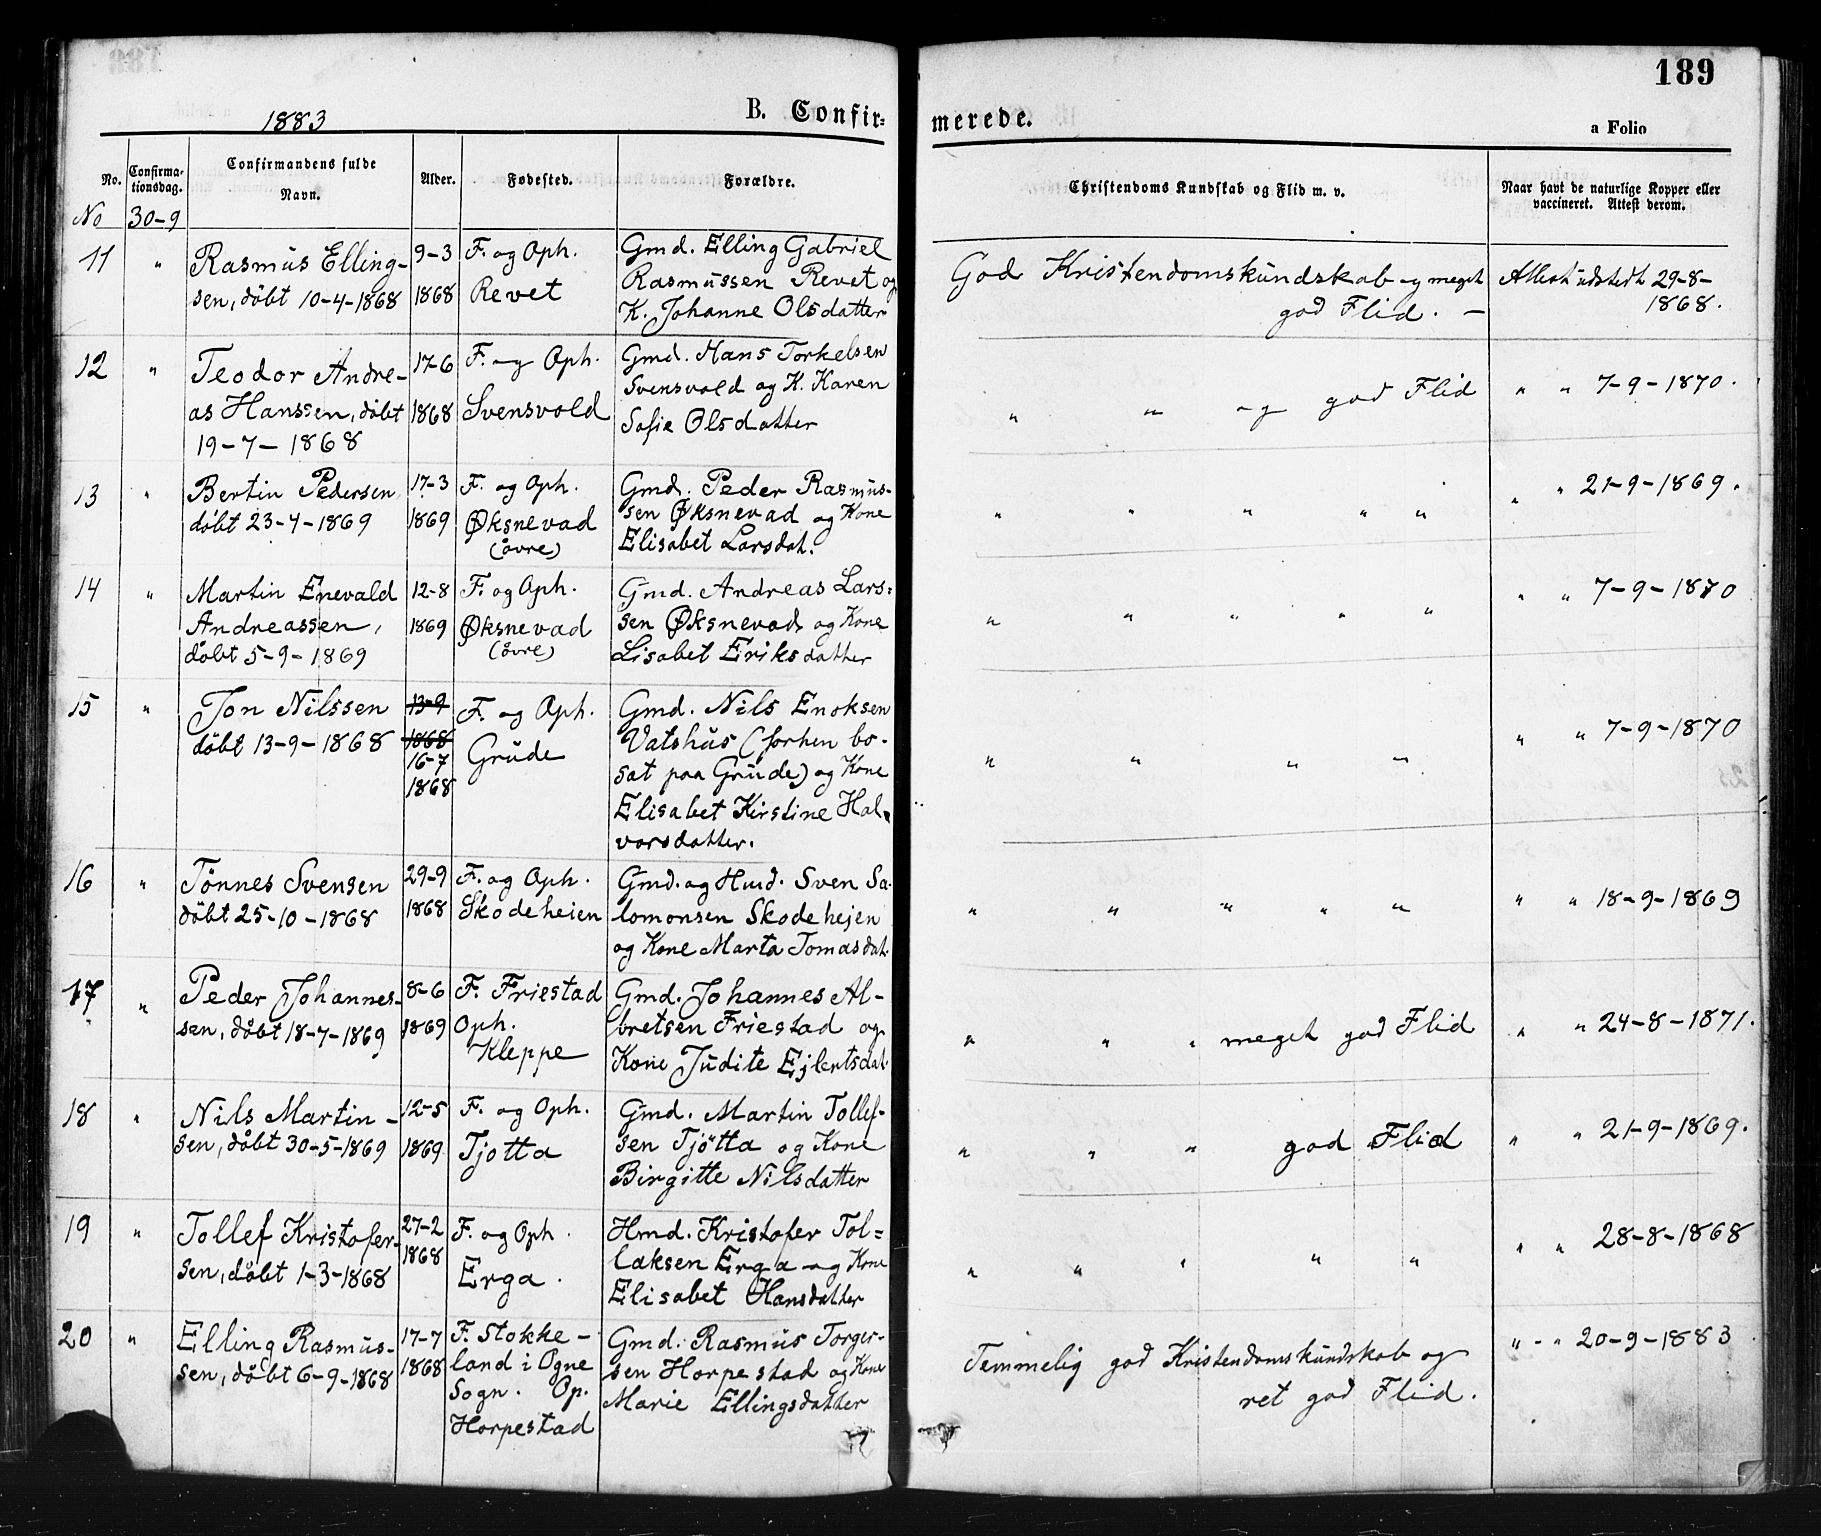 189
1883 B. Confirmerede. a Folio
No. Confirmationsdag. Confirmandens fulde Navn. Alder. Fødested. Forældre. Christendoms Kundskab og Flid m. v. Naar havt de naturlige Kopper eller vaccineret. Attest derom.
No 30-9
11 " Rasmus Elling- 9-3 F. og Oph. Gmd. Elling Gabriel God Kristendomskundskab og meget Attest udstedt 29-8-
sen, döbt 10-4-1868 1868 Revet Rasmussen Revet og god Flid. - 1868.
K. Johanne Olsdatter
12 " Teodor Andre- 17-6 F. og Oph. Gmd. Hans Torkelsen " " og god Flid " " 7-9-1870.
as Hanssen, döbt 1868 Svensvold Svensvold og K. Karen
19-7-1868 Sofie Olsdatter
13 " Bertin Pedersen, 17-3 F. og Oph. Gmd. Peder Rasmus- " " " " " " " 21-9-1869.
döbt 23-4-1869 1869 Øksnevad sen Øksnevad og Kone
(övre) Elisabet Larsdat.
14 " Martin Enevald 12-8 F. og Oph. Gmd. Andreas Lars= " " " " " " " 7-9-1870
Andreassen, 1869 Øksnevad sen Øksnevad og Kone
döbt 5-9-1869 (övre) Lisabet Eriksdatter
15 " Jon Nilssen 13-9 F. og Oph. Gmd. Nils Enoksen " " " " " " 7-9-1870
döbt 13-9-1868 1868 Grude Vatshus (forhen bo-
16-7 sat paa Grude) og Kone
1868 Elisabet Kirstine Hal-
vorsdatter.
16 " Tönnes Svensen 29-9 F. og Oph. Gmd. og Husd. Sven Sa- " " " " " " " 18-9-1869
döbt 25-10-1868 1868 Skodeheien lomonsen Skodehejen
og Kone Marta Tomasdat.
17 " Peder Johannes- 8-6 F. Friestad Gmd. Johannes Al- " " " meget god Flid " " 24-8-1871.
sen, döbt 18-7-1869 1869 Oph. bretsen Friestad og
Kleppe Kone Judite Ejlertsdat.
18 " Nils Martin- 12-5 F. og Oph. Gmd. Martin Tollef- " " " god Flid " " 21-9-1869.
sen, döbt 30-5-1869 1869 Tjotta sen Tjötta og Kone
Birgitte Nilsdatter
19 " Tollef Kristofer- 27-2 F. og Oph. Hmd. Kristofer Tol= " " " " " " " 28-8-1868
sen, döbt 1-3-1868 1868 Erga. laksen Erga og Kone
Elisabet Hansdatter
20 " Elling Rasmus- 17-7 F. Stokke- Gmd. Rasmus Torger- Temmelig god Kristendomskundskab og " - " 20-9-1883
sen, döbt 6-9-1868 1868 land i Ogne sen Horpestad og Kone ret god Flid.
Sogn. Op. Marie Ellingsdatter
Horpestad